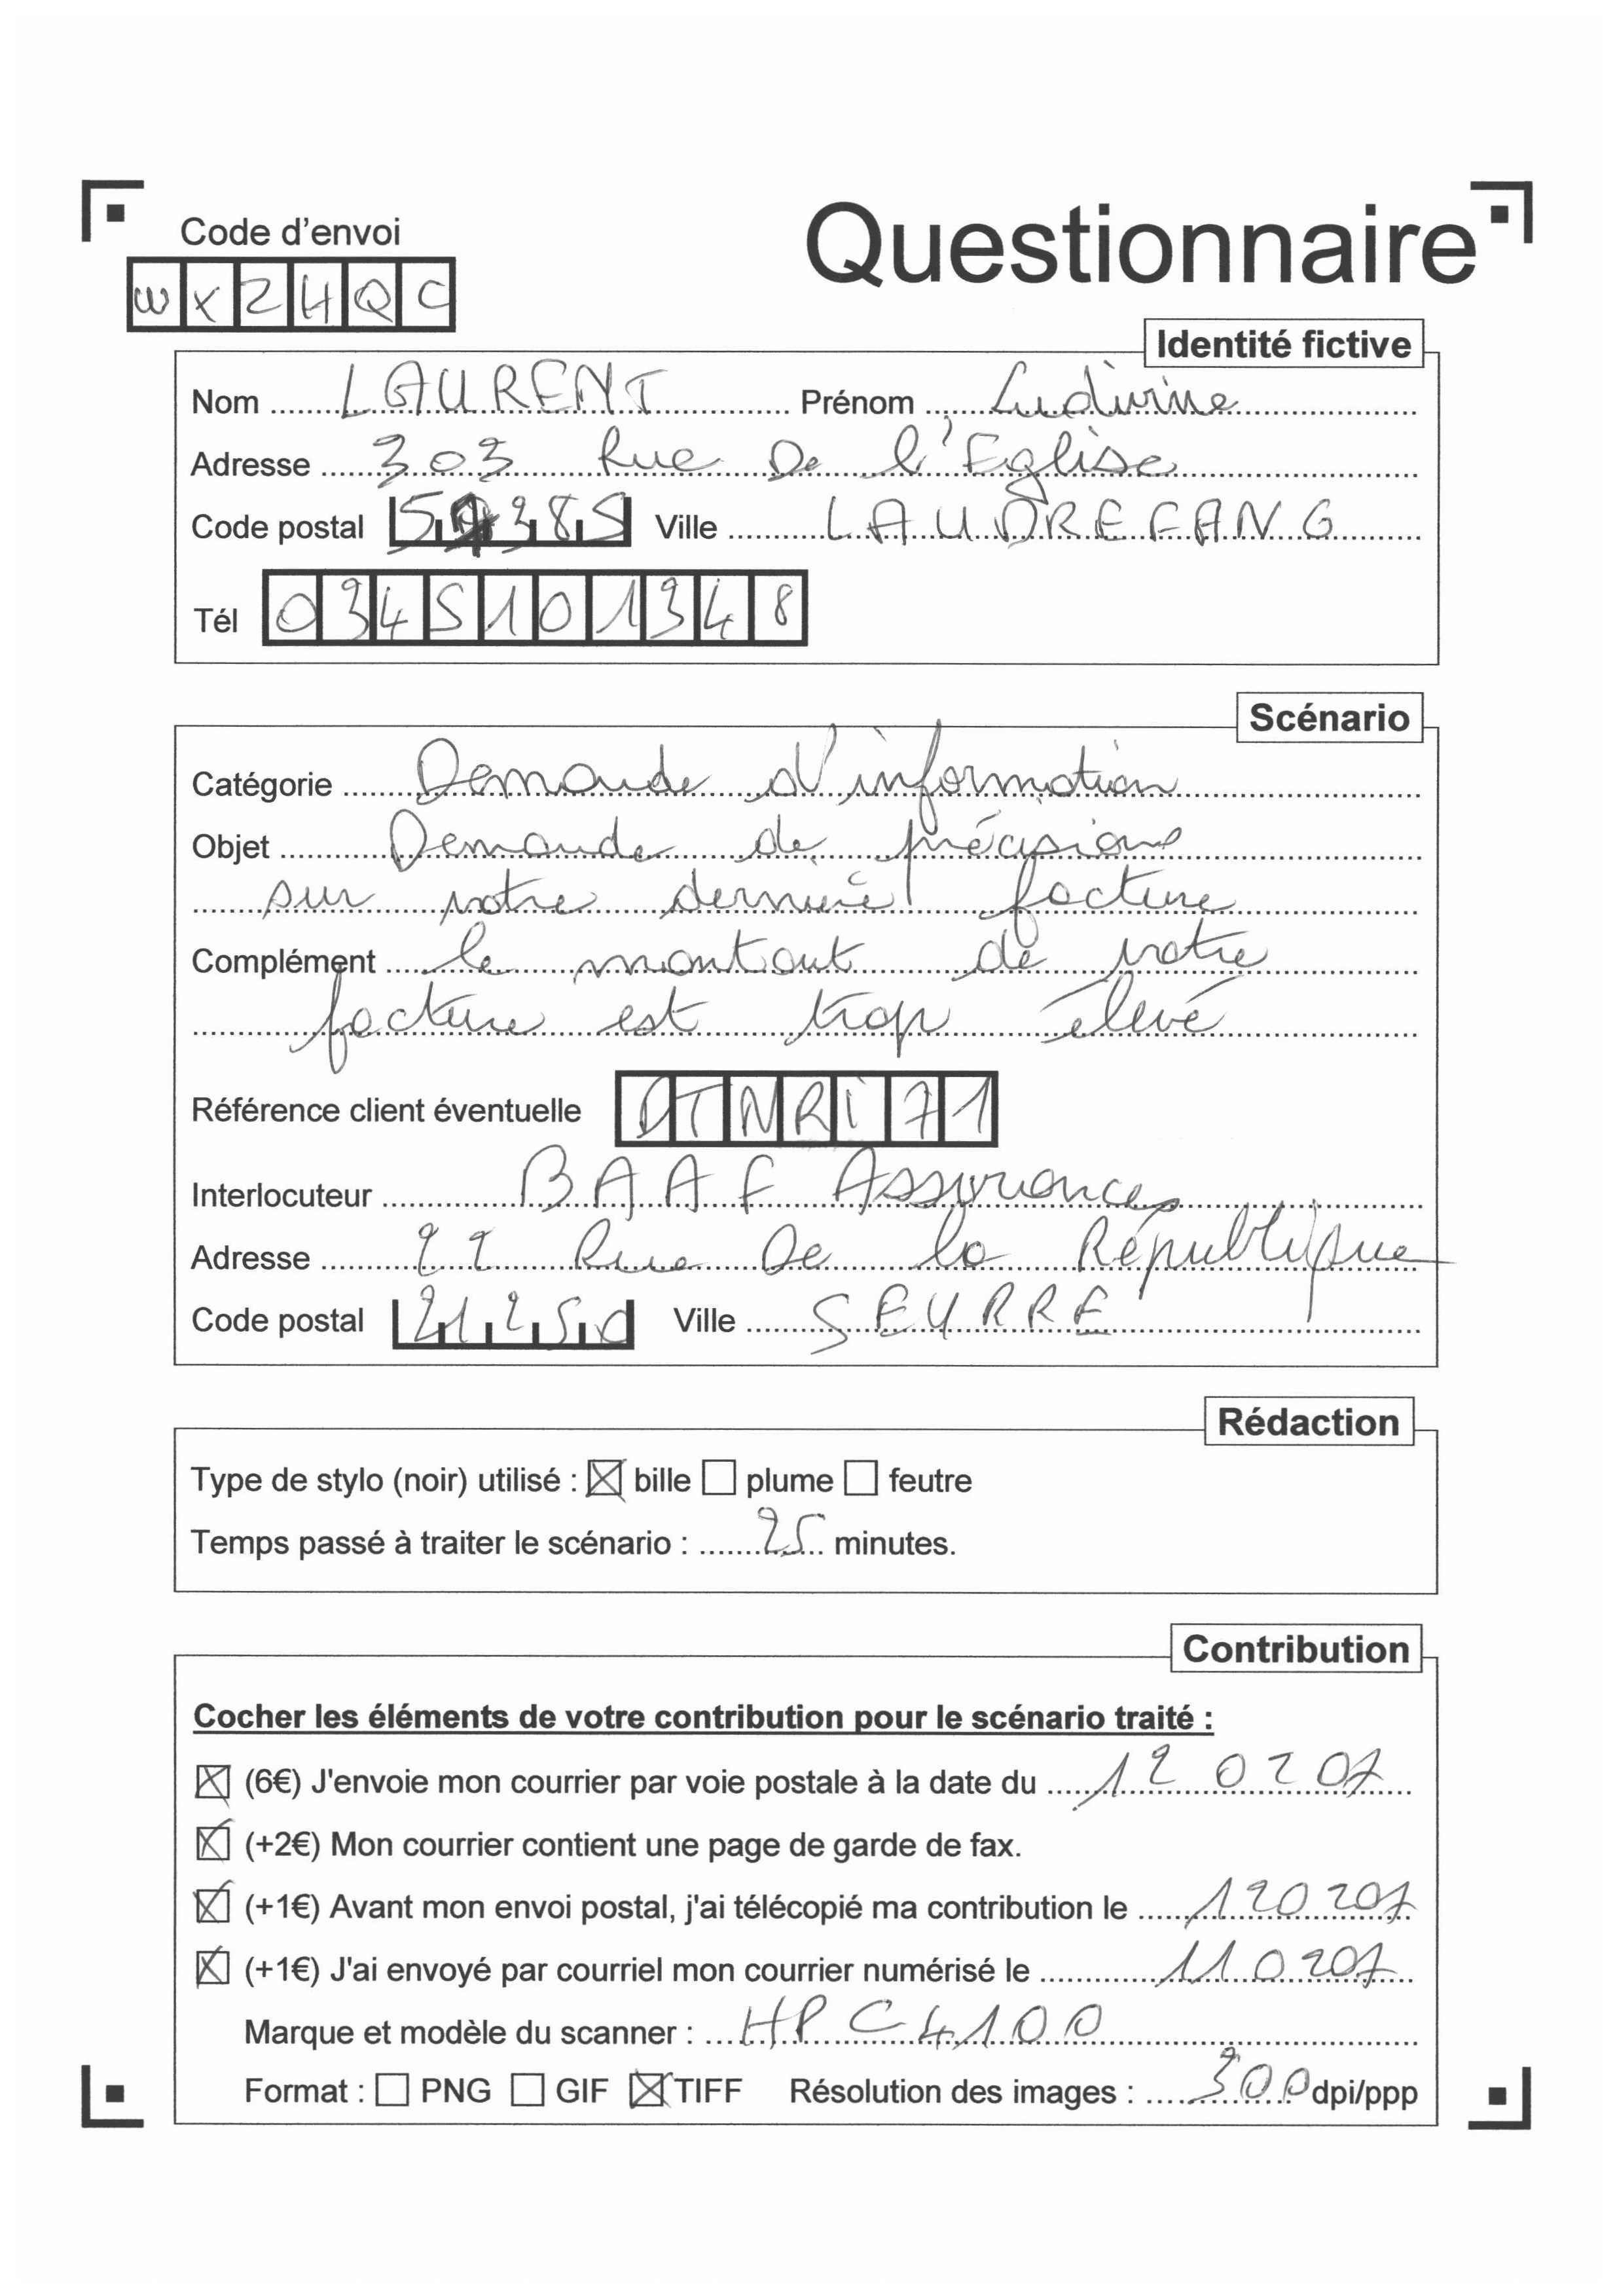 Code d'envoi
Questionnaire
WXZHQC
Identité fictive
Nom LAURENT Prénom Ludivine
Adresse 303 Rue De l'Eglise
Code postal Ville LAUDREFANG
Tél 0345101348
Scénario
Catégorie Demande d'information
Objet Demande de précisions
sur votre dernière facture
Complément le montant de votre
facture est trop élevé
Référence client éventuelle DTNRI71
Interlocuteur BAAF Assurances
Adresse 22 Rue De la République
Code postal 21250 Ville SEURRE
Rédaction
Type de stylo (noir) utilisé : bille plume feutre
Temps passé à traiter le scénario : 25 minutes.
Contribution
Cocher les éléments de votre contribution pour le scénario traité :
(6€) J'envoie mon courrier par voie postale à la date du 12 02 07
(+2€) Mon courrier contient une page de garde de fax.
(+1€) Avant mon envoi postal, j'ai télécopié ma contribution le 120207
(+1€) J'ai envoyé par courriel mon courrier numérisé le 110207
Marque et modèle du scanner : HP C4100
Format : PNG GIF TIFF Résolution des images : 300 dpi/ppp